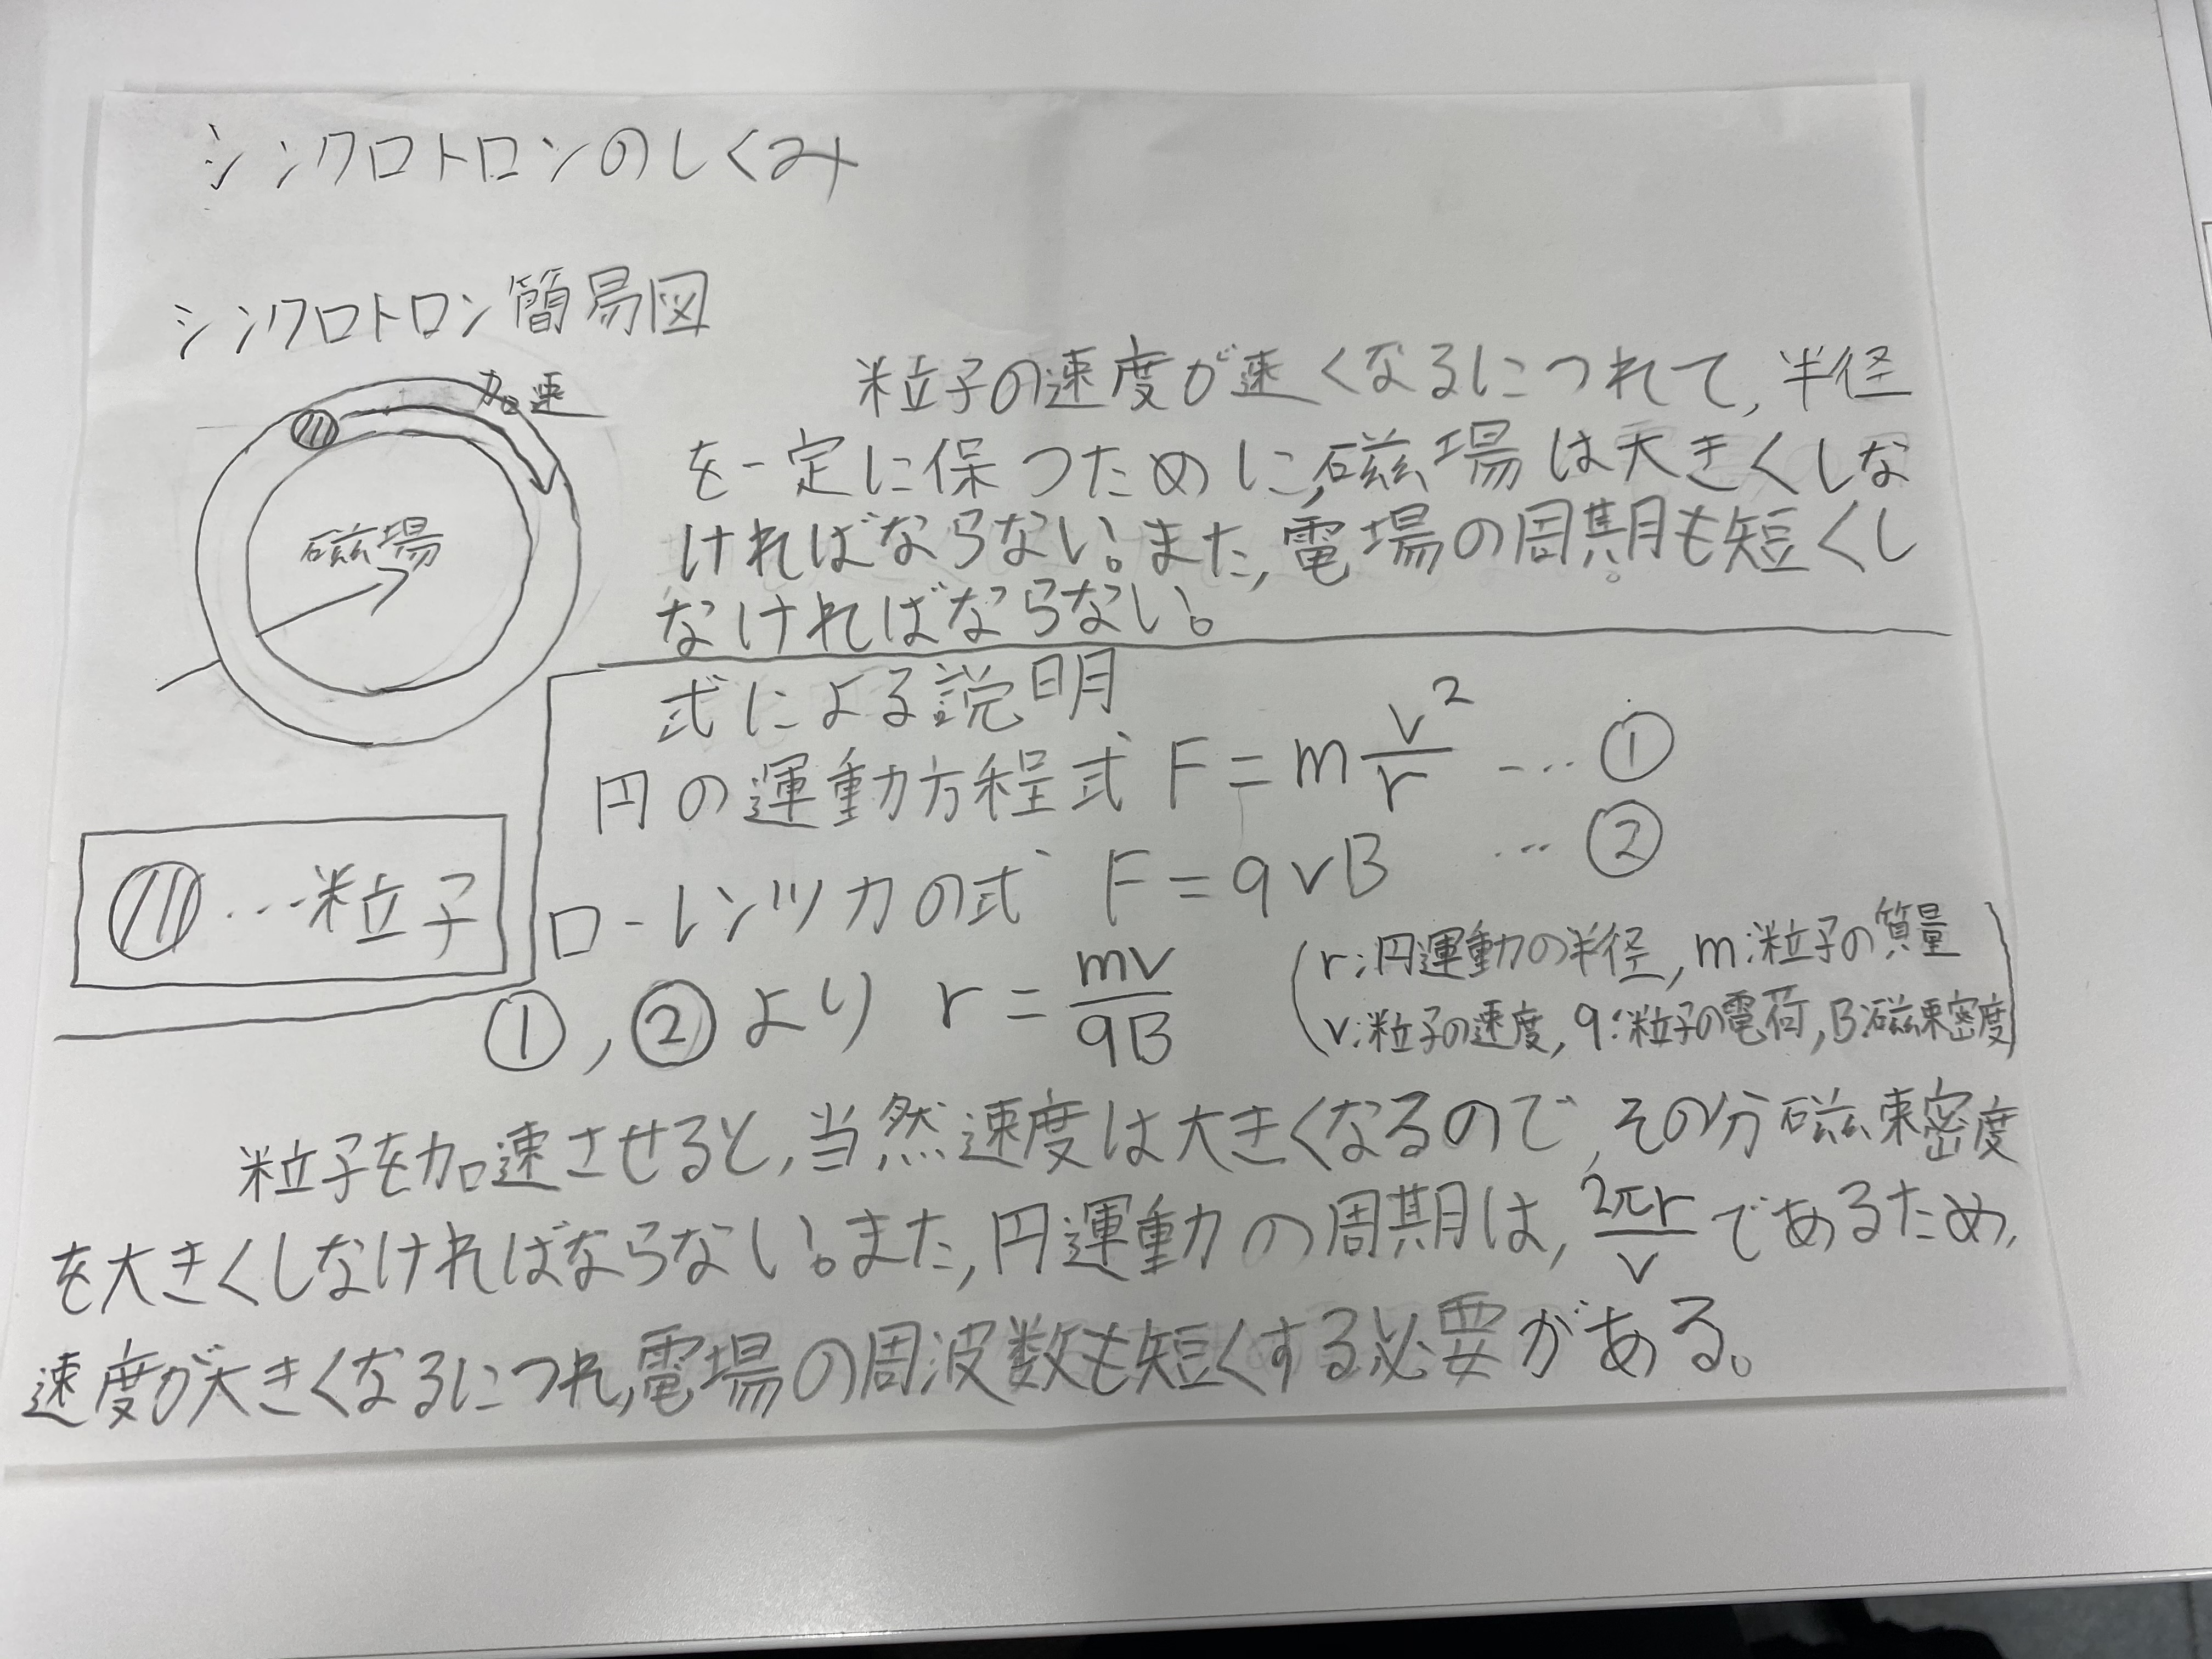 シンクロトロンのしくみ
シンクロトロン簡易図
加速
磁場
粒子の速度が速くなるにつれて,半径
を一定に保つために,磁場は大きくしな
ければならない。また,電場の周期も短くし
なければならない。
…粒子
式による説明
円の運動方程式 F=m v²/r …①
ローレンツ力の式 F=qvB …②
①,②より r=mv/qB
(r:円運動の半径,m:粒子の質量
v:粒子の速度,q:粒子の電荷,B:磁束密度)
粒子を加速させると,当然速度は大きくなるので,その分磁束密度
を大きくしなければならない。また,円運動の周期は,2πr/vであるため,
速度が大きくなるにつれ,電場の周波数も短くする必要がある。